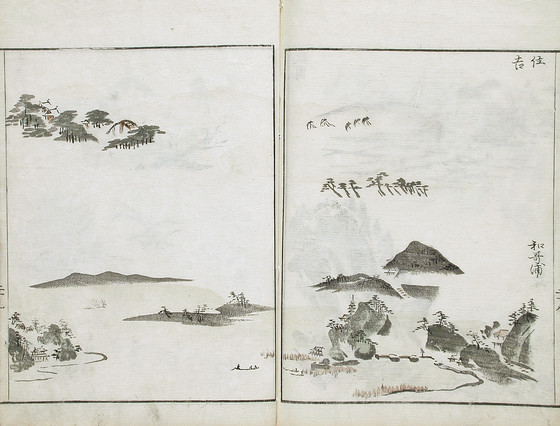 住吉
和哥浦